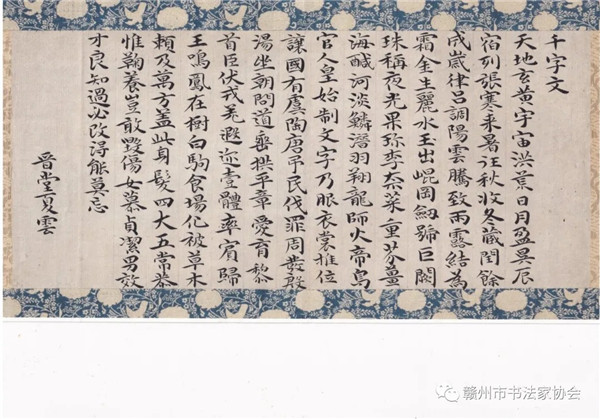 千字文
天地玄黃宇宙洪荒日月盈昃辰
宿列張寒来暑汪秋收冬蔵閏餘
成歲律呂調陽雲騰致雨露結為
霜金生麗水玉出崐岡劒號巨闕
珠稱夜光果珎李柰菜重芥薑
海醎河淡鱗潛羽翔龍師火帝鳥
官人皇始制文字乃服衣裳推位
讓國有虞陶唐弔民伐罪周發殷
湯坐朝問道垂拱平章愛育黎
首臣伏戎羌遐迩壹體率賓歸
王鳴鳳在樹白駒食場化被草木
賴及萬方盖此身髮四大五常恭
惟鞠養豈敢毀傷女慕貞潔男效
才良知過必改得能莫忘
晋堂夏雲
赣州市书法家协会